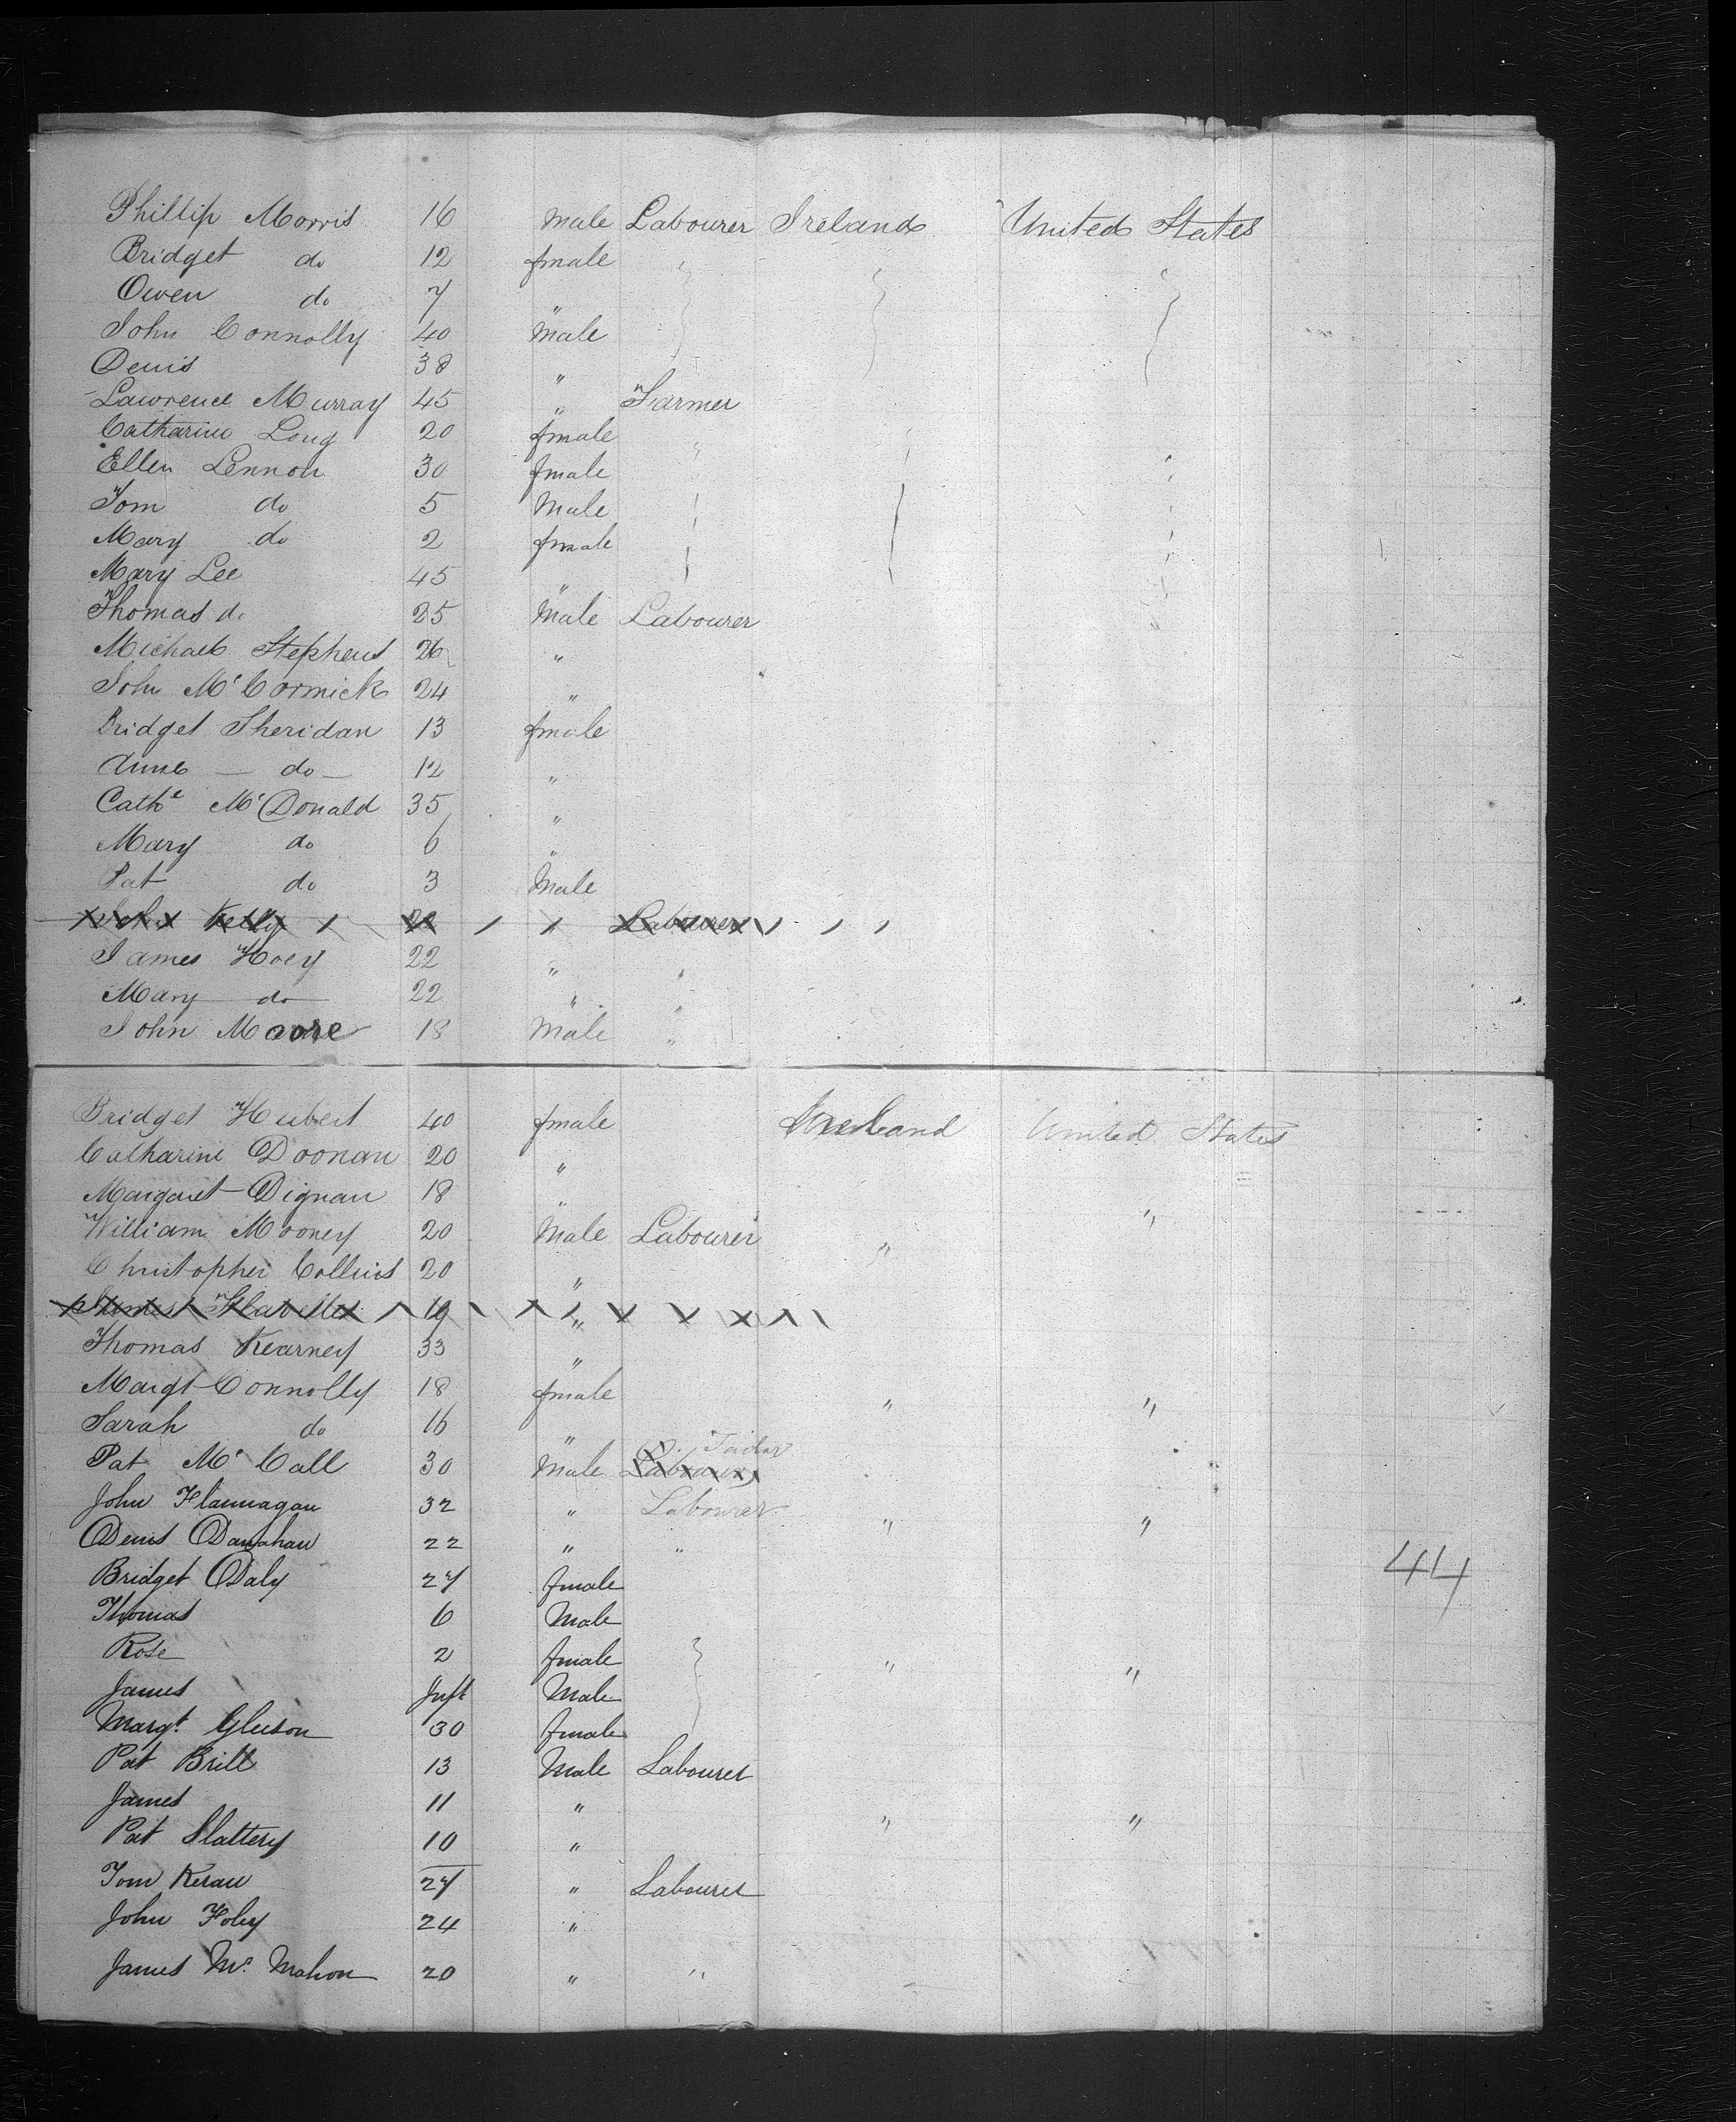 Phillip Morris 16 Male Labourer Ireland United States
Bridget do 12 fmale
Owen do 7 "
John Connolly 40 Male
Denis 38 "
Lawrence Murray 45 " Farmer
Catharine Long 20 fmale
Ellen Lennon 30 fmale
Tom do 5 Male
Mary do 2 fmale
Mary Lee 45 "
Thomas do 25 Male Labourer
Michael Stephens 26 "
John McCormick 24 "
Bridget Sheridan 13 fmale
Anne do 12 "
Cathe McDonald 35 "
Mary do 6 "
Pat do 3 Male
John Kelly 22 " Labourer
James Hoey 22 "
Mary do 22 "
John Moore 18 Male "
Bridget Hubert 40 fmale Ireland United States
Catharine Doonan 20 "
Margaret Dignan 18 "
William Mooney 20 Male Labourer " "
Christopher Collins 20 "
James 19 "
Thomas Kearney 33 "
Margt Connolly 18 fmale " "
Sarah do 16 "
Pat McCall 30 Male Labourer Tailor
John Flannagan 32 " Labourer " "
Denis Danahau 22 " "
Bridget Daly 27 fmale
44
Thomas 6 Male
Rose 2 fmale " "
James Inft Male
Margt Gleeson 30 fmale
Pat Brill 13 Male Labourer
James 11 " " "
Pat Slattery 10 "
Tom Keran 27 " Labourer
John Foley 24 "
James Mc Mahon 20 " "